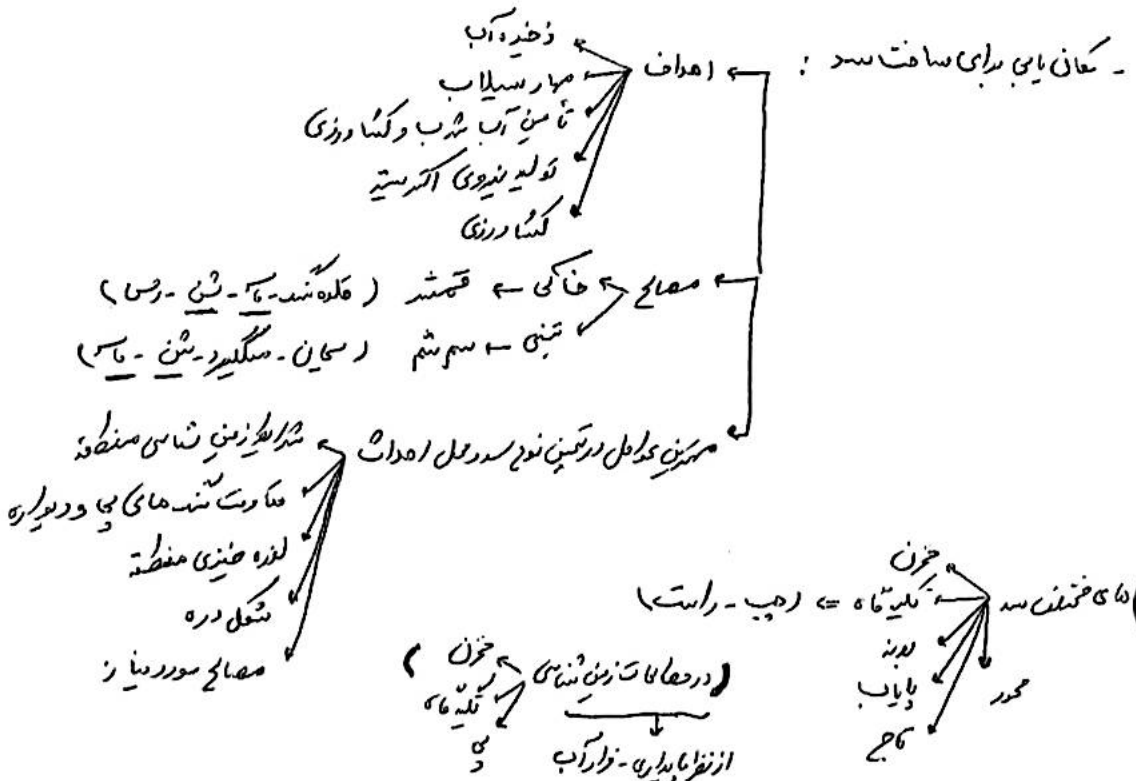 - مکان یابی برای ساخت سد :
اهداف
ذخیره آب
مهار سیلاب
تأمین آب شرب و کشاورزی
تولید نیروی الکتریسیته
کشاورزی
مصالح
خاکی ← قمشد (قلوه سنگ - ماسه - شن - رس)
بتنی ← سمشم (سیمان - میلگرد - شن - ماسه)
مهمترین عوامل در تعیین نوع سد و محل احداث
شرایط زمین شناسی منطقه
مقاومت سنگ های پی و دیواره
لرزه خیزی منطقه
شکل دره
مصالح مورد نیاز
های مختلف سد
مخزن
تکیه گاه => (چپ - راست)
بدنه
پایاب
تاج
محور
(در مطالعات زمین شناسی
مخزن
تکیه گاه
پی )
از نظر پایداری - فرار آب